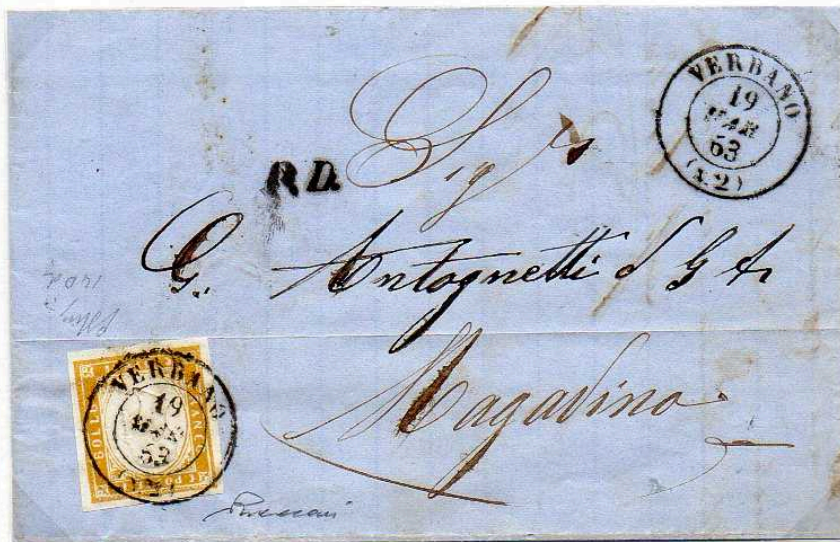 VERBANO
19
MAR
63
(x.2)
P.D.
Sig
G. Antognetti d G A
Magadino
VERBANO
19
MAR
63
BOLLO